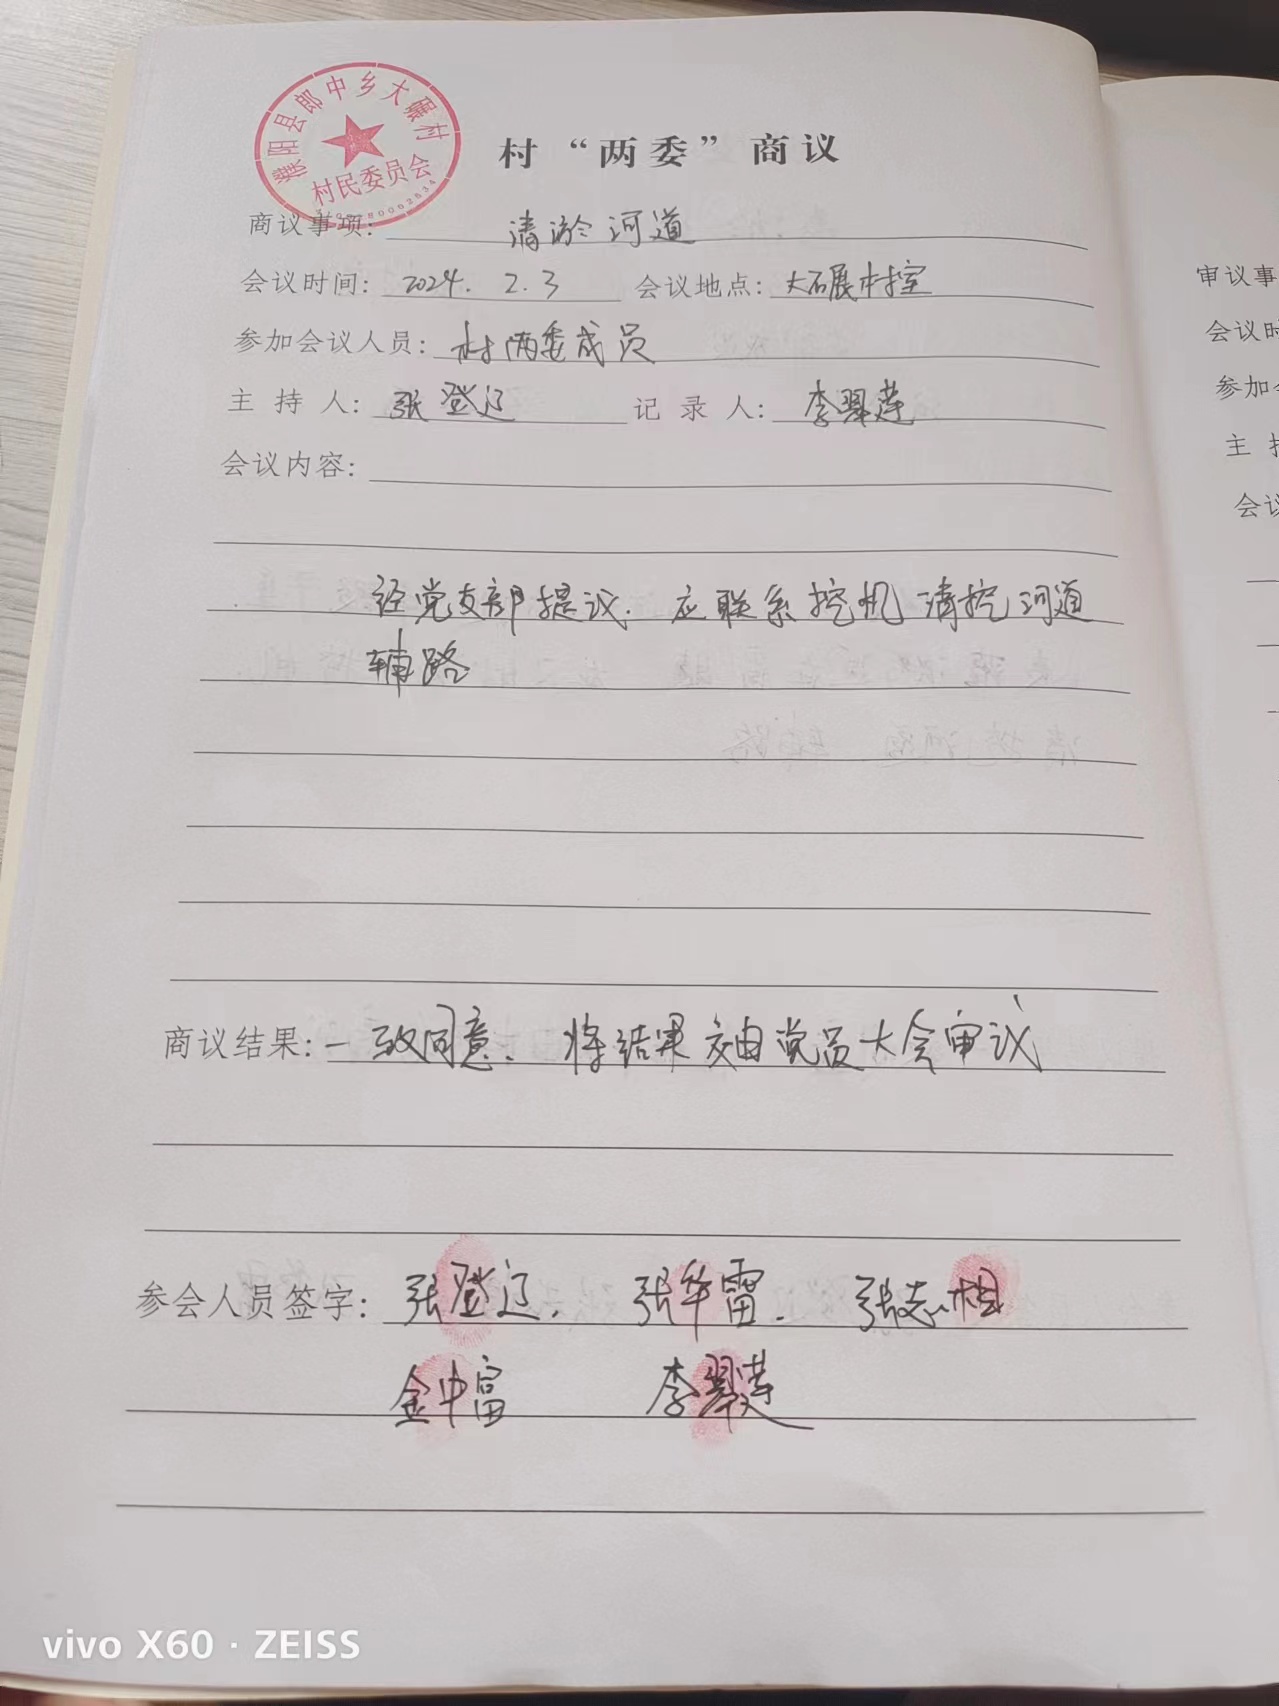 濮阳县郎中乡大碾村
村民委员会
村“两委”商议
商议事项: 清淤河道
会议时间: 2024. 2. 3 会议地点: 大碾村室
参加会议人员: 村两委成员
主持人: 张登辽 记录人: 李翠莲
会议内容:
经党支部提议. 应联系挖机清挖河道
辅路
商议结果: 一致同意. 将结果交由党员大会审议
参会人员签字: 张登辽. 张华雷. 张志相
金中富 李翠莲
审议事
会议时
参加会
主持
会议
vivo X60 · ZEISS